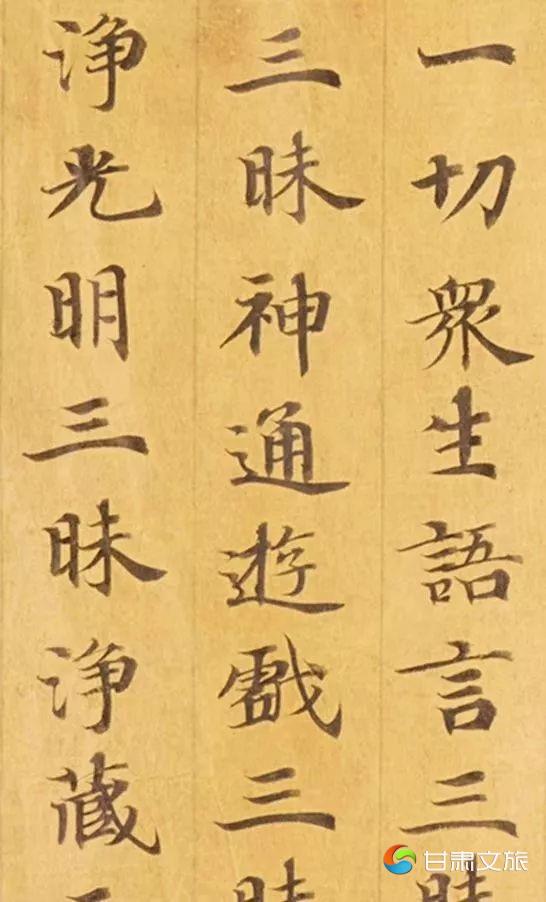 一切衆生語言三昧
三昧神通遊戲三昧
净光明三昧净藏三
甘肃文旅